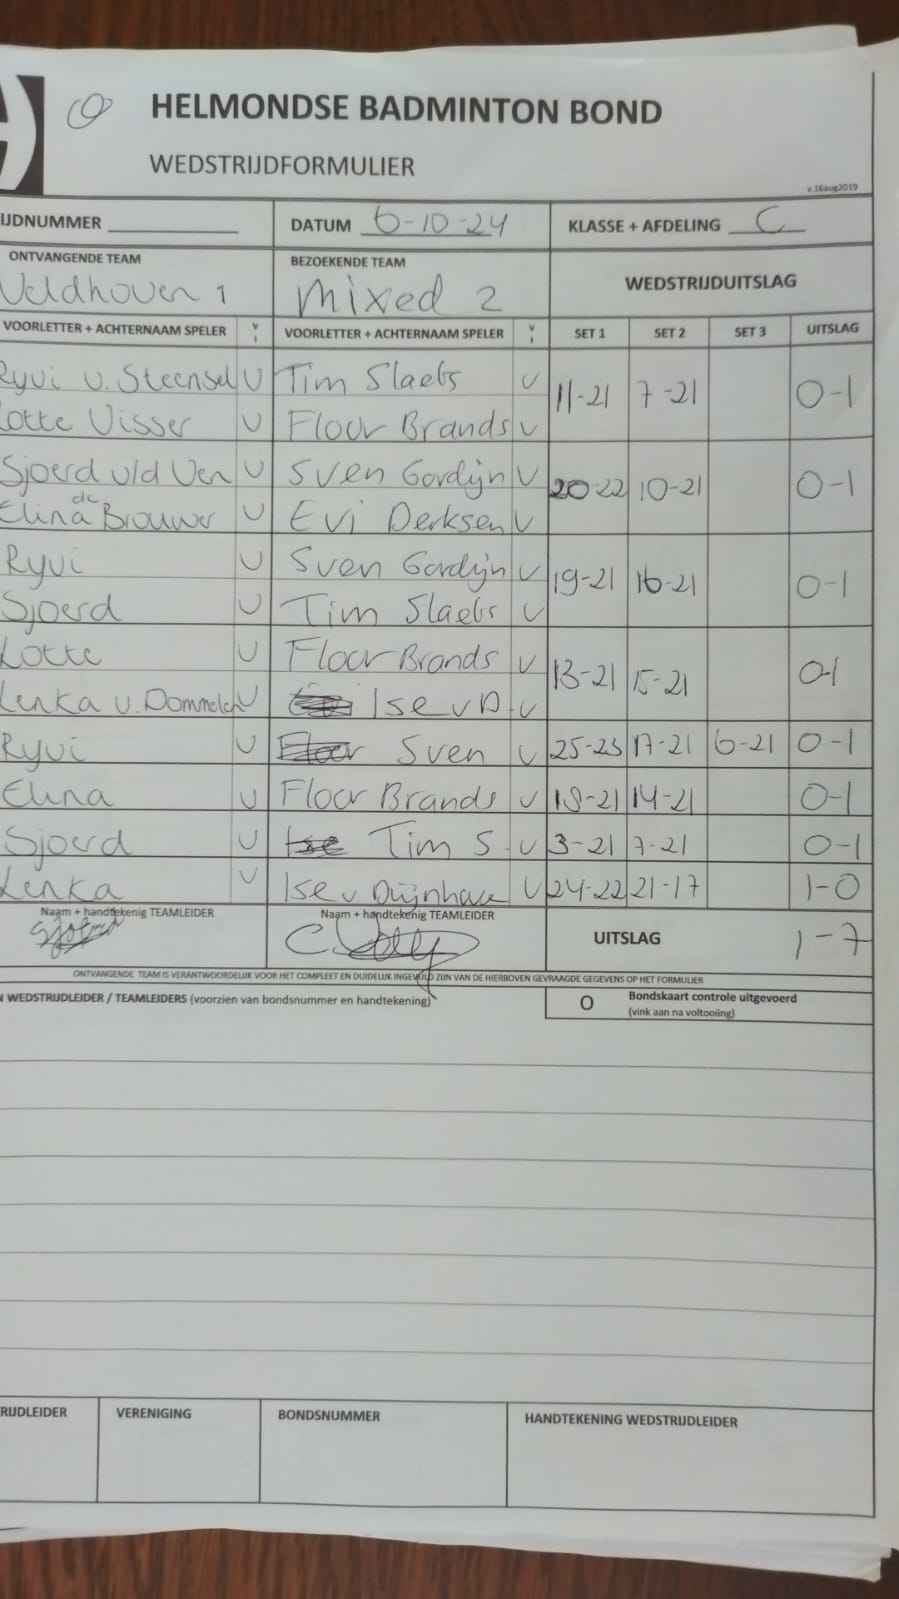 HELMONDSE BADMINTON BOND
WEDSTRIJDFORMULIER
v.16aug2019
IJDNUMMER DATUM 6-10-24 KLASSE + AFDELING C
ONTVANGENDE TEAM BEZOEKENDE TEAM WEDSTRIJDUITSLAG
Veldhoven 1 Mixed 2
VOORLETTER + ACHTERNAAM SPELER V VOORLETTER + ACHTERNAAM SPELER V SET 1 SET 2 SET 3 UITSLAG
Ryvi v. Steensel V Tim Slaets V 11-21 7-21 0-1
Lotte Visser V Floor Brands V
Sjoerd v/d Ven V Sven Gordijn V 20-22 10-21 0-1
Elina de Brouwer V Evi Derksen V
Ryvi V Sven Gordijn V 19-21 16-21 0-1
Sjoerd V Tim Slaets V
Lotte V Floor Brands V 13-21 15-21 0-1
Lenka v. Dommelen V Ise v D. V
Ryvi V Sven V 25-23 17-21 6-21 0-1
Elina V Floor Brands V 18-21 14-21 0-1
Sjoerd V Tim S. V 3-21 7-21 0-1
Lenka V Ise v Duijnhove V 24-22 21-17 1-0
Naam + handtekenig TEAMLEIDER Naam + handtekenig TEAMLEIDER UITSLAG 1-7
Sjoerd
ONTVANGENDE TEAM IS VERANTWOORDELIJK VOOR HET COMPLEET EN DUIDELIJK INGEVULD ZIJN VAN DE HIERBOVEN GEVRAAGDE GEGEVENS OP HET FORMULIER
N WEDSTRIJDLEIDER / TEAMLEIDERS (voorzien van bondsnummer en handtekening) O Bondskaart controle uitgevoerd
(vink aan na voltooiing)
RIJDLEIDER VERENIGING BONDSNUMMER HANDTEKENING WEDSTRIJDLEIDER